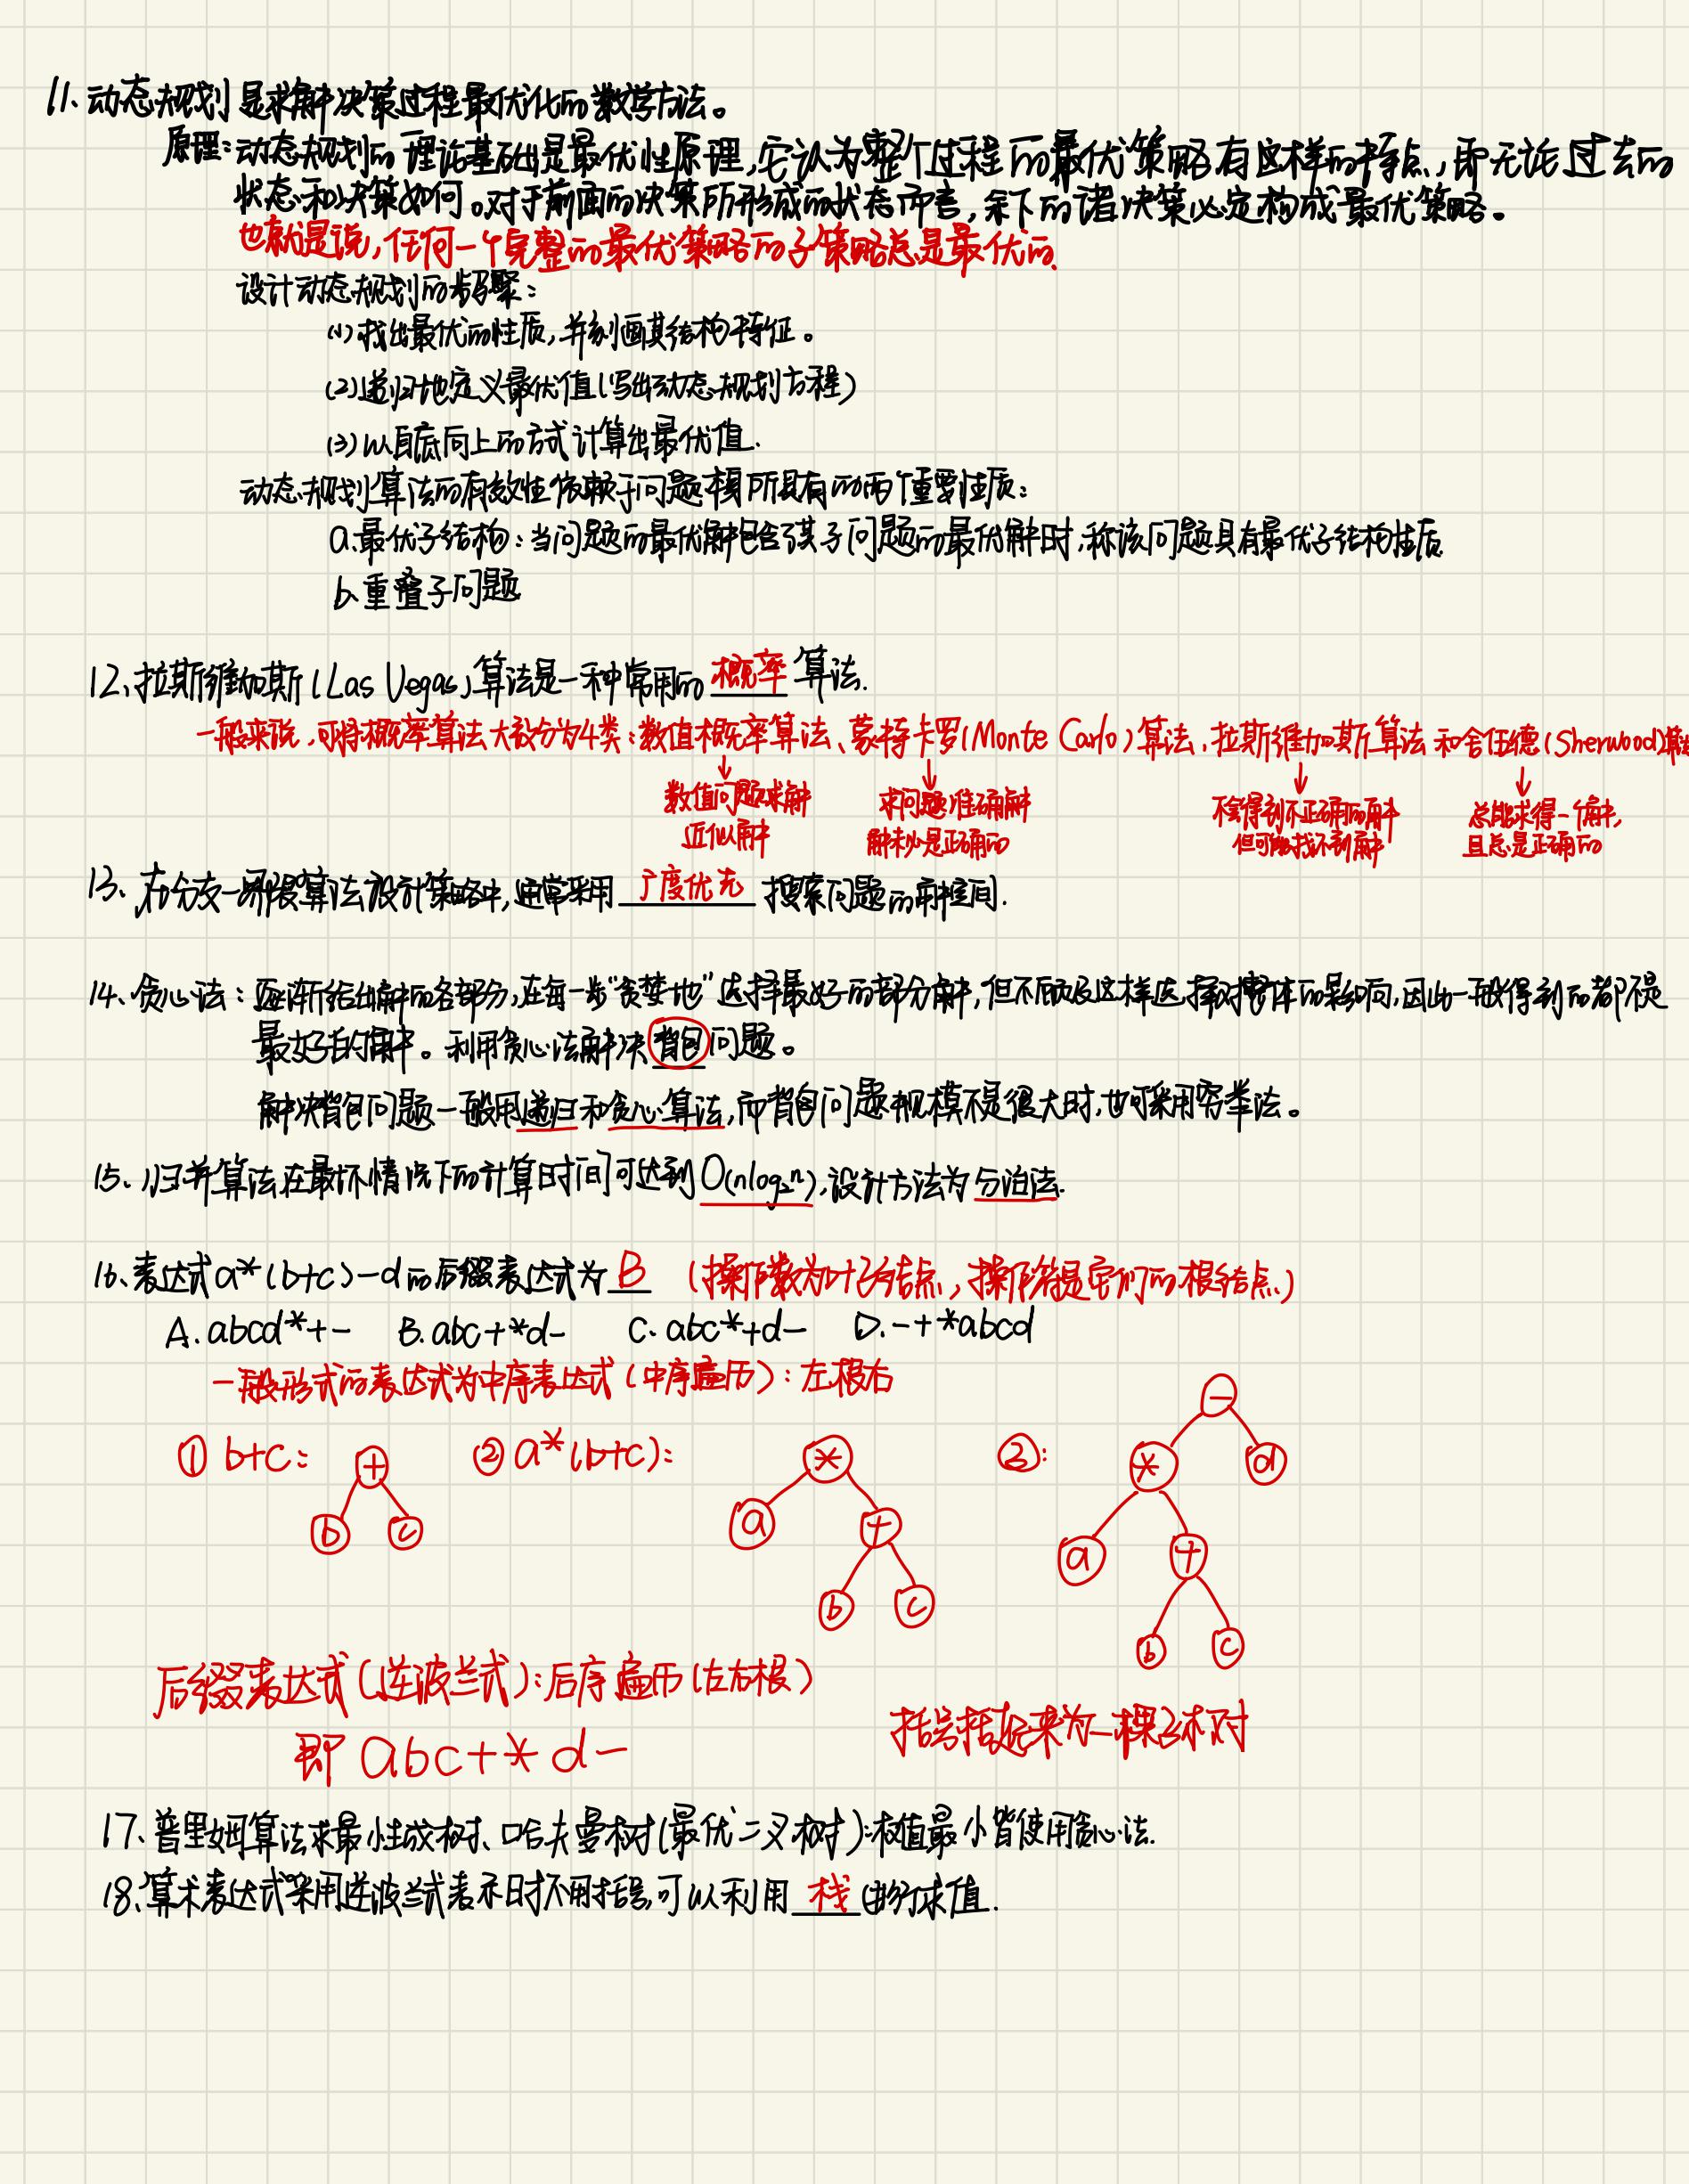 11、动态规划是求解决策过程最优化的数学方法。
原理:动态规划的理论基础是最优性原理,它认为整个过程的最优策略有这样的特点,即无论过去的
状态和决策如何。对于前面的决策所形成的状态而言,余下的诸决策必定构成最优策略。
也就是说,任何一个完整的最优策略的子策略总是最优的.
设计动态规划的步骤:
(1)找出最优的性质,并刻画其结构特征。
(2)递归地定义最优值(写出动态规划方程)
(3)以自底向上的方式计算出最优值.
动态规划算法的有效性依赖于问题本身所具有的两个重要性质:
a.最优子结构:当问题的最优解包含了其子问题的最优解时,称该问题具有最优子结构性质
b、重叠子问题
12、拉斯维加斯(Las Vegas)算法是一种常用的 概率 算法.
一般来说,可将概率算法大致分为4类:数值概率算法、蒙特卡罗(Monte Carlo)算法、拉斯维加斯算法和舍伍德(Sherwood)算法
↓ ↓ ↓ ↓
数值问题求解 求问题准确解 不会得到不正确的解 总能求得一个解,
近似解 解未必是正确的 但可能找不到解 且总是正确的
13、在分支-界限算法设计策略中,通常采用 广度优先 搜索问题的解空间.
14、贪心法:逐渐给出解的各部分,在每一步"贪婪地"选择最好的部分解,但不顾及这样选择对整体的影响,因此一般得到的都不是
最好的解。利用贪心法解决背包问题。
解决背包问题一般用递归和贪心算法,而背包问题规模不是很大时,也可采用穷举法。
15、归并算法在最坏情况下的计算时间可达到O(nlog₂n),设计方法为分治法.
16、表达式a*(b+c)-d的后缀表达式为 B (操作数为叶子结点,操作符是它们的根结点)
A.abcd*+- B.abc+*d- C.abc*+d- D.-+*abcd
一般形式的表达式为中序表达式(中序遍历):左根右
① b+c: + b c ② a*(b+c): * a + b c ③: - * d a + b c
后缀表达式(逆波兰式):后序遍历(左右根)
即 abc+*d-
括号括起来为一棵子树
17、普里姆算法求最小生成树、哈夫曼树(最优二叉树):权值最小皆使用贪心法.
18、算术表达式采用逆波兰式表示时不用括号,可以利用 栈 进行求值.